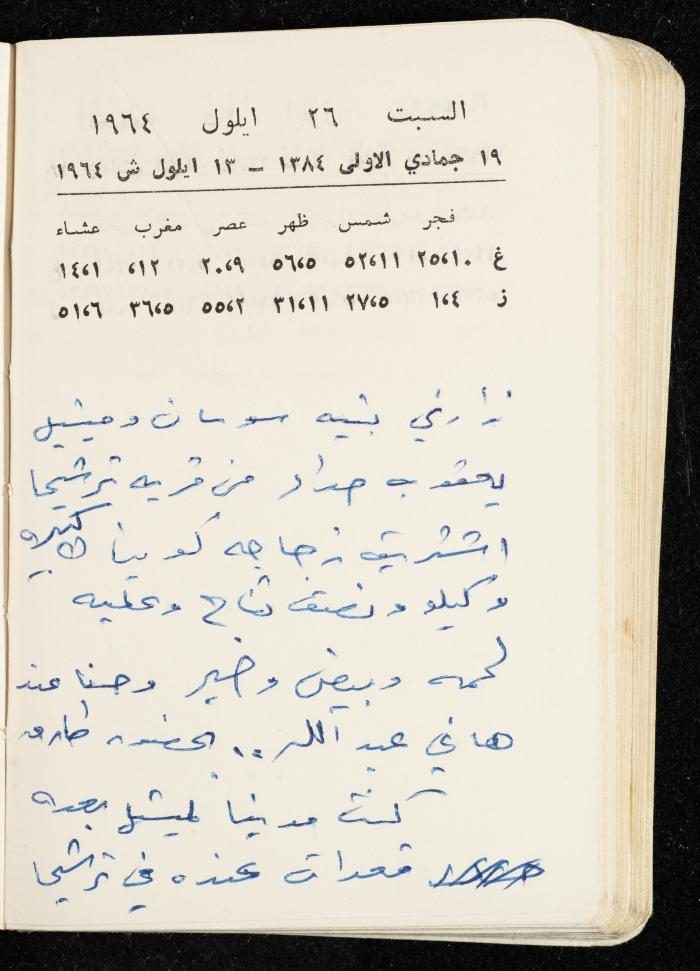 السبت ٢٦ ايلول ١٩٦٤
١٩ جمادي الاولى ١٣٨٤ – ١٣ ايلول ش ١٩٦٤
فجر شمس ظهر عصر مغرب عشاء
غ ٢٥،١٠ ٥٢،١١ ٥٦،٥ ٢٠،٩ ،١٢ ١٤،١
ز ١،٤ ٢٧،٥ ٣١،١١ ٥٥،٢ ٣٦،٥ ٥١،٦
زارني بشيه سوسان وميشيل
يعقوب حداد من قرية ترشيحا
اشتريت زجاجه كوينا كبيره
وكيلو ونصف تفاح وعلبه
لحمه وبيض وخبز وصفا عند
هاني عبد الله .. بحضور طارق
كنت مدينا لميشيل بعده
قعدات عنده في ترشيحا